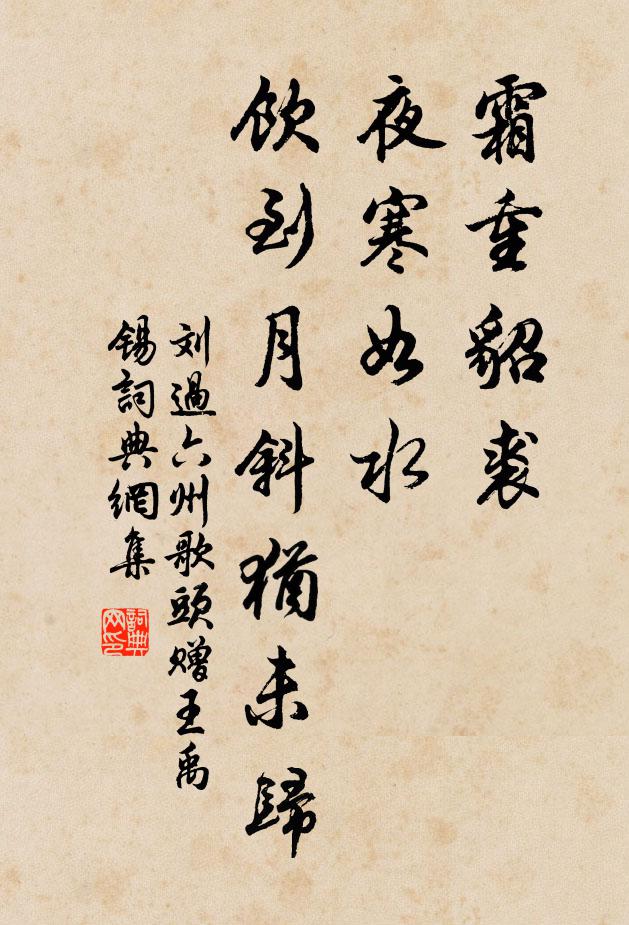 霜重貂裘
夜寒如水
饮到月斜犹未歸
刘過六州歌頭赠王禹
錫詞典網集
詞典网印